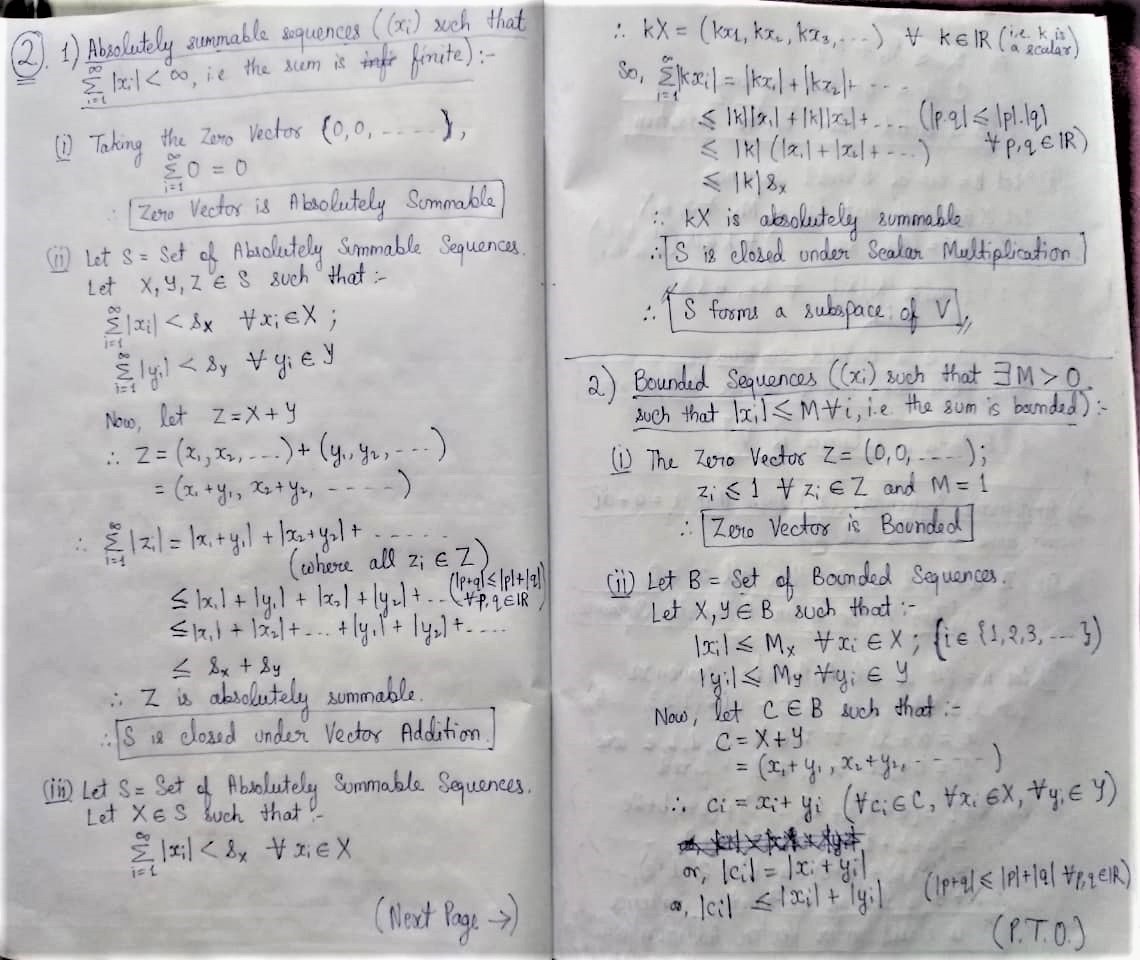 2. 1) Absolutely summable sequences ((xi) such that
∞Σi=1 |xi| < ∞, i.e the sum is finite) :-
(i) Taking the Zero Vector {0,0, ......},
∞Σi=1 0 = 0
∴ Zero Vector is Absolutely Summable
(ii) Let S = Set of Absolutely Summable Sequences.
Let X, Y, Z ∈ S such that :-
∞Σi=1 |xi| < sx ∀ xi ∈ X ;
∞Σi=1 |yi| < sy ∀ yi ∈ Y
Now, let Z = X + Y
∴ Z = (x1, x2, ....) + (y1, y2, ....)
= (x1 + y1, x2 + y2, .....)
∴ ∞Σi=1 |zi| = |x1 + y1| + |x2 + y2| + ......
(where all zi ∈ Z)
≤ |x1| + |y1| + |x2| + |y2| + ... (|p+q| ≤ |p|+|q| ∀ p, q ∈ IR)
≤ |x1| + |x2| + ... + |y1| + |y2| + .....
≤ sx + sy
∴ Z is absolutely summable.
∴ S is closed under Vector Addition.
(iii) Let S = Set of Absolutely Summable Sequences.
Let X ∈ S such that :-
∞Σi=1 |xi| < sx ∀ xi ∈ X
(Next Page →)
∴ kX = (kx1, kx2, kx3, ....) ∀ k ∈ IR (i.e. k is a scalar)
So, ∞Σi=1 |kxi| = |kx1| + |kx2| + ....
≤ |k||x1| + |k||x2| + .... (|p.q| ≤ |p|.|q|
≤ |k| (|x1| + |x2| + ...) ∀ p, q ∈ IR)
≤ |k| sx
∴ kX is absolutely summable
∴ S is closed under Scalar Multiplication
∴ S forms a subspace of V
2) Bounded Sequences ((xi) such that ∃ M > 0
such that |xi| ≤ M ∀ i, i.e. the sum is bounded) :-
(i) The Zero Vector Z = (0,0, .....);
zi ≤ 1 ∀ zi ∈ Z and M = 1
∴ Zero Vector is Bounded
(ii) Let B = Set of Bounded Sequences.
Let X, Y ∈ B such that :-
|xi| ≤ Mx ∀ xi ∈ X ; {i ∈ {1,2,3, ...})
|yi| ≤ My ∀ yi ∈ Y
Now, let C ∈ B such that :-
C = X + Y
= (x1 + y1, x2 + y2, ......)
∴ ci = xi + yi (∀ ci ∈ C, ∀ xi ∈ X, ∀ yi ∈ Y)
or, |ci| = |xi + yi|
or, |ci| ≤ |xi| + |yi| (|p+q| ≤ |p|+|q| ∀ p, q ∈ IR)
(P.T.O.)